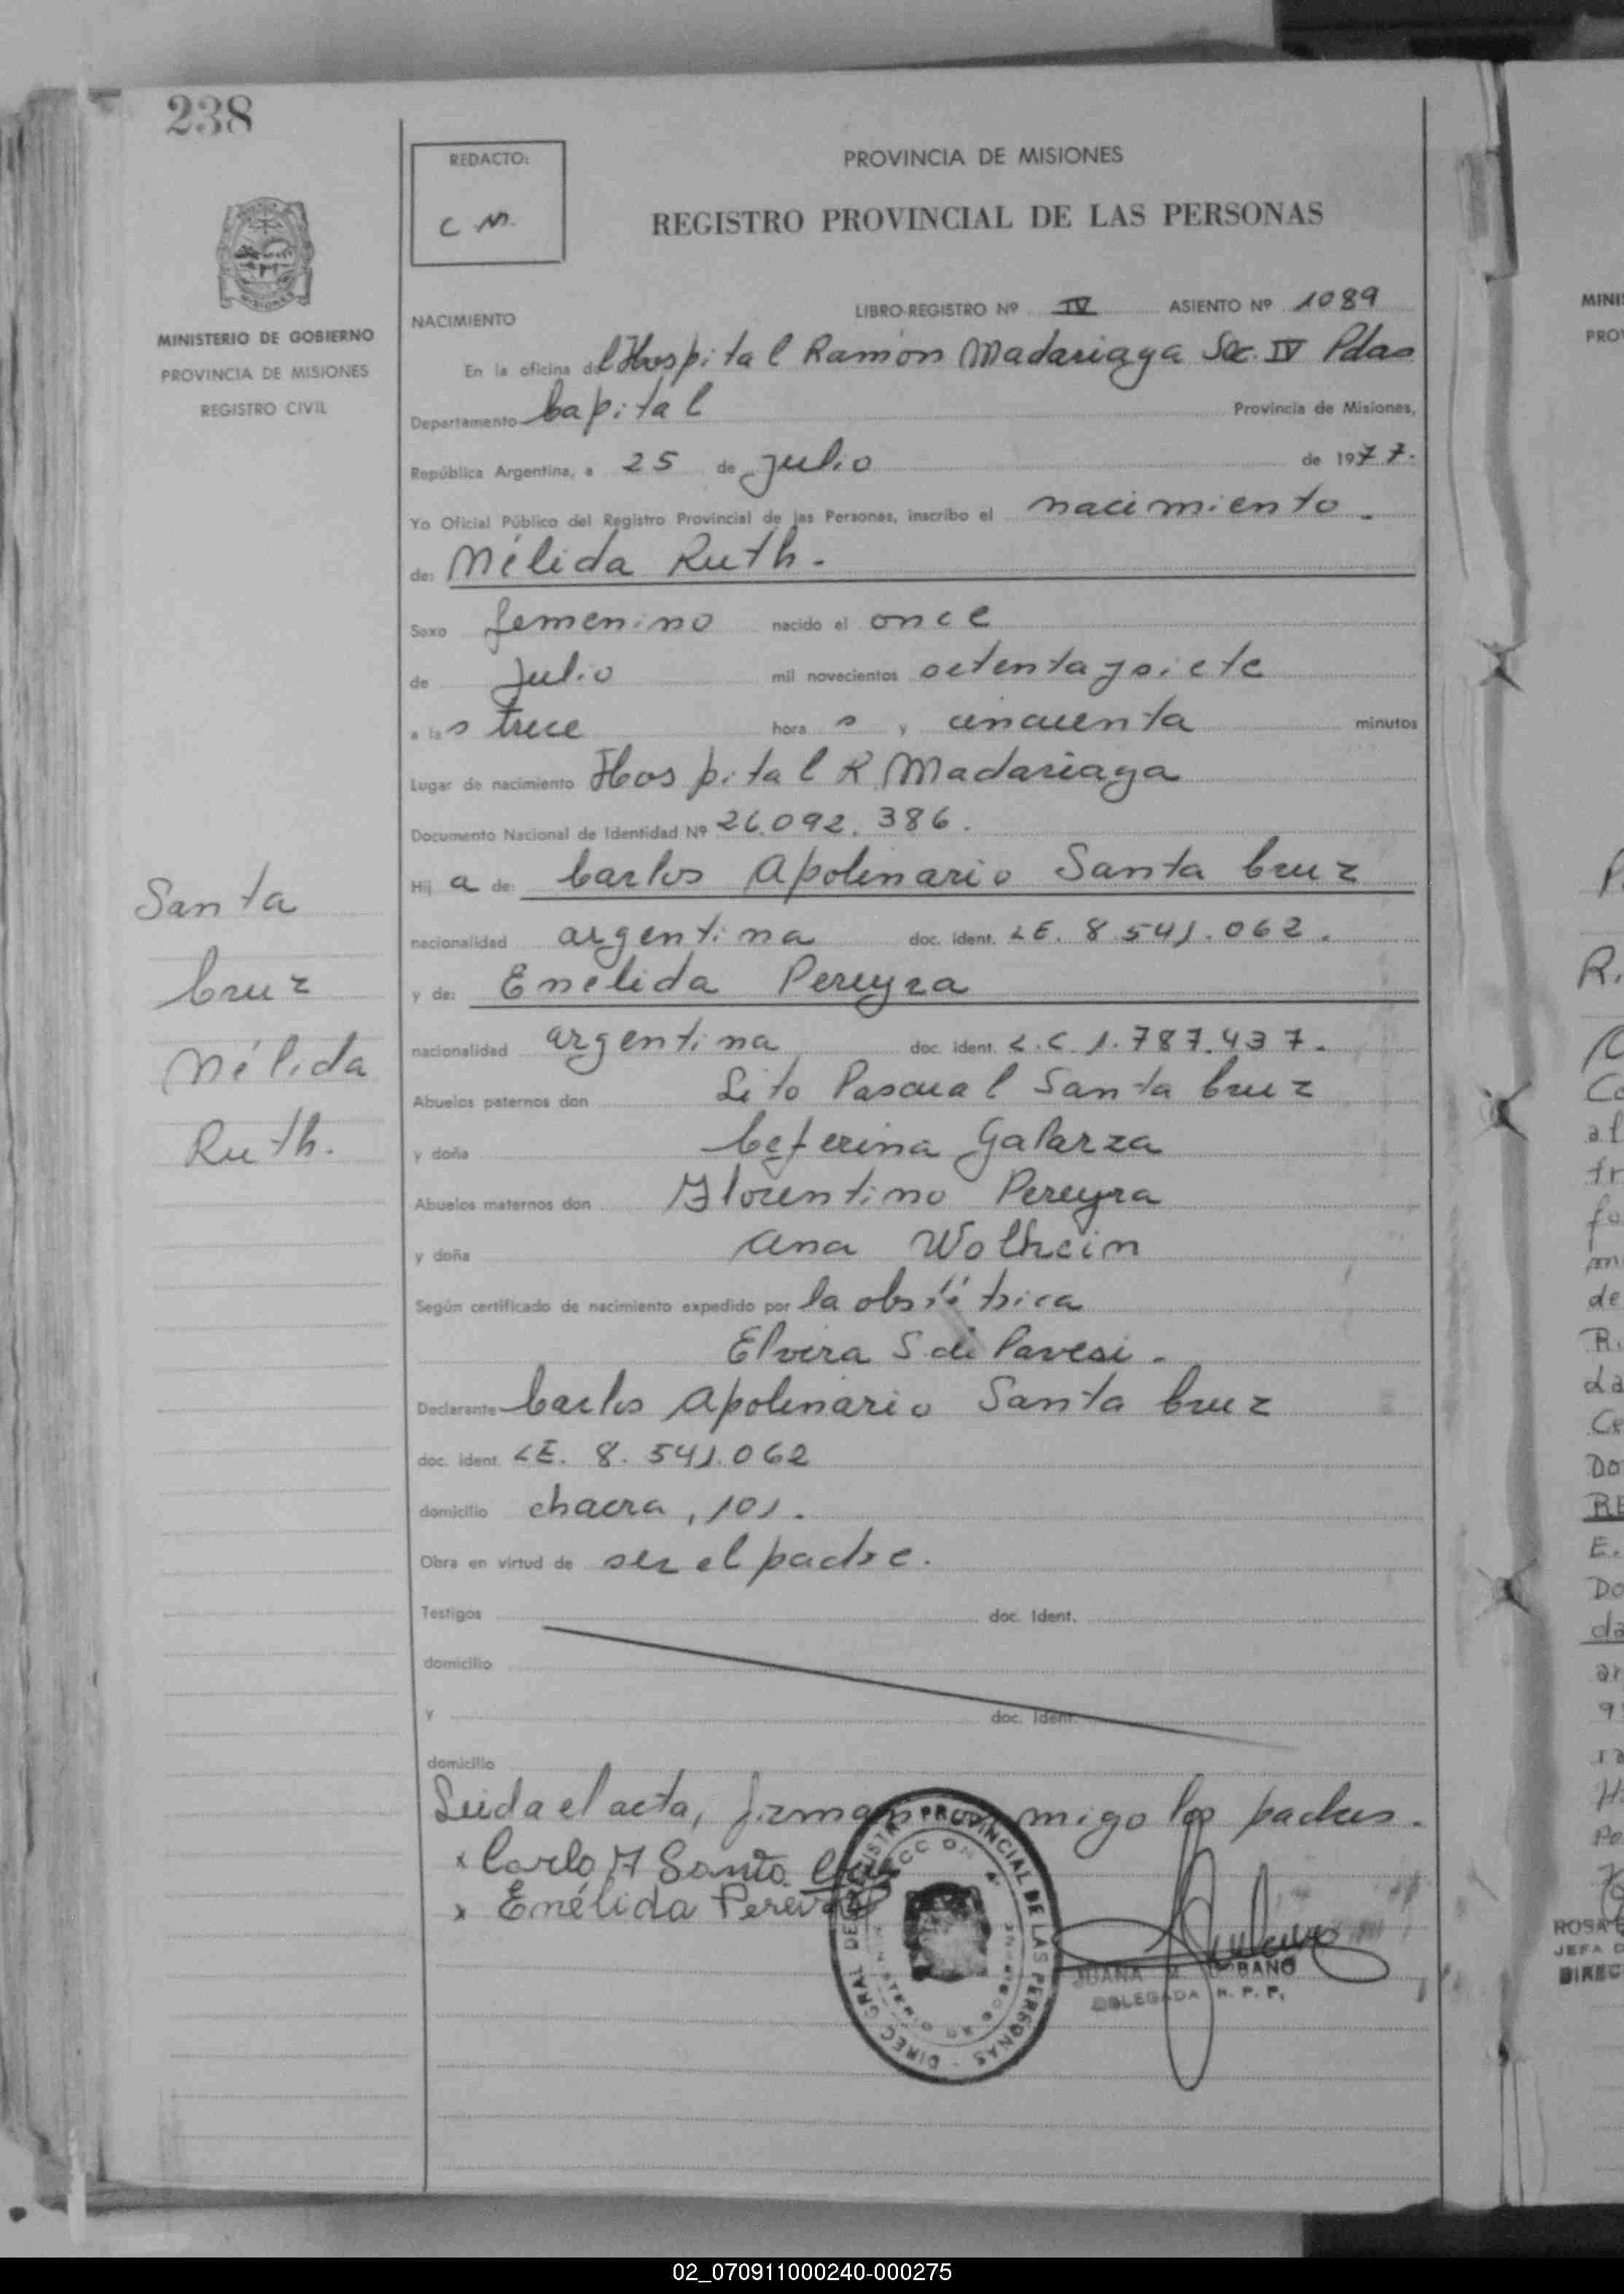 238
REDACTO:
C M.
PROVINCIA DE MISIONES
REGISTRO PROVINCIAL DE LAS PERSONAS
MINISTERIO DE GOBIERNO
PROVINCIA DE MISIONES
REGISTRO CIVIL
NACIMIENTO LIBRO-REGISTRO Nº IV ASIENTO Nº 1089
En la oficina del Hospital Ramón Madariaga Sec. IV Pdas
Departamento Capital Provincia de Misiones,
República Argentina, a 25 de Julio de 1977.
Yo Oficial Público del Registro Provincial de las Personas, inscribo el nacimiento.
de: Nélida Ruth.
Sexo femenino nacido el once
de Julio mil novecientos setenta y siete
a las trece hora s y cincuenta minutos
Lugar de nacimiento Hospital R. Madariaga
Documento Nacional de Identidad Nº 26.092.386.
Hij a de: Carlos Apolinario Santa Cruz
nacionalidad argentina doc. ident. LE. 8.541.062.
y de: Enélida Pereyra
nacionalidad argentina doc. ident. L.C 1.787.437.
Abuelos paternos don Lito Pascual Santa Cruz
y doña Ceferina Galarza
Abuelos maternos don Florentino Pereyra
y doña Ana Wolhein
Según certificado de nacimiento expedido por la obstétrica
Elvira S. de Pavesi.
Declarante Carlos Apolinario Santa Cruz
doc. ident. LE. 8.541.062
domicilio chacra, 101.
Obra en virtud de ser el padre.
Testigos doc. Ident.
domicilio
y doc. Ident.
domicilio
Leida el acta, firman migo los padres.
x Carlo A Santa Cruz
x Enélida Pereira
Santa
Cruz
Nélida
Ruth.
DIREC. GRAL. DEL REGISTRO PROVINCIAL DE LAS PERSONAS
JUANA
DELEGADA R. P. P.
MINIS
PRO
R.
al
de
R.
da
Ce
DO
RE
E.
DO
da
ROSA
JEFA D
DIREC
02_070911000240-000275